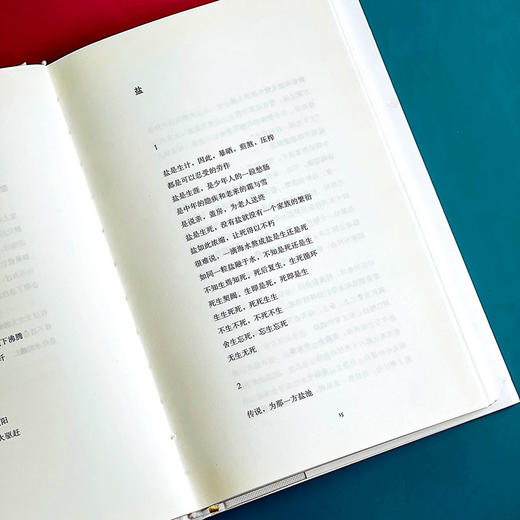 下沸腾
阳
火驱赶
盐
1
盐是生计，因此，暴晒，煎熬，压榨
都是可以忍受的劳作
盐是生涯，是少年人的一段愁肠
是中年的隐疾和老来的霜与雪
是说亲，盖房，为老人送终
盐是生死，没有盐就没有一个家族的繁衍
盐如此浓缩，让死得以不朽
很难说，一滴海水熬成盐是生还是死
如同一粒盐融于水，不知是死还是生
不知生焉知死，死后复生，生死循环
死生契阔，生即是死，死即是生
生生死死，死死生生
不生不死，不死不生
舍生忘死，忘生忘死
无生无死
2
传说，为那一方盐池
15